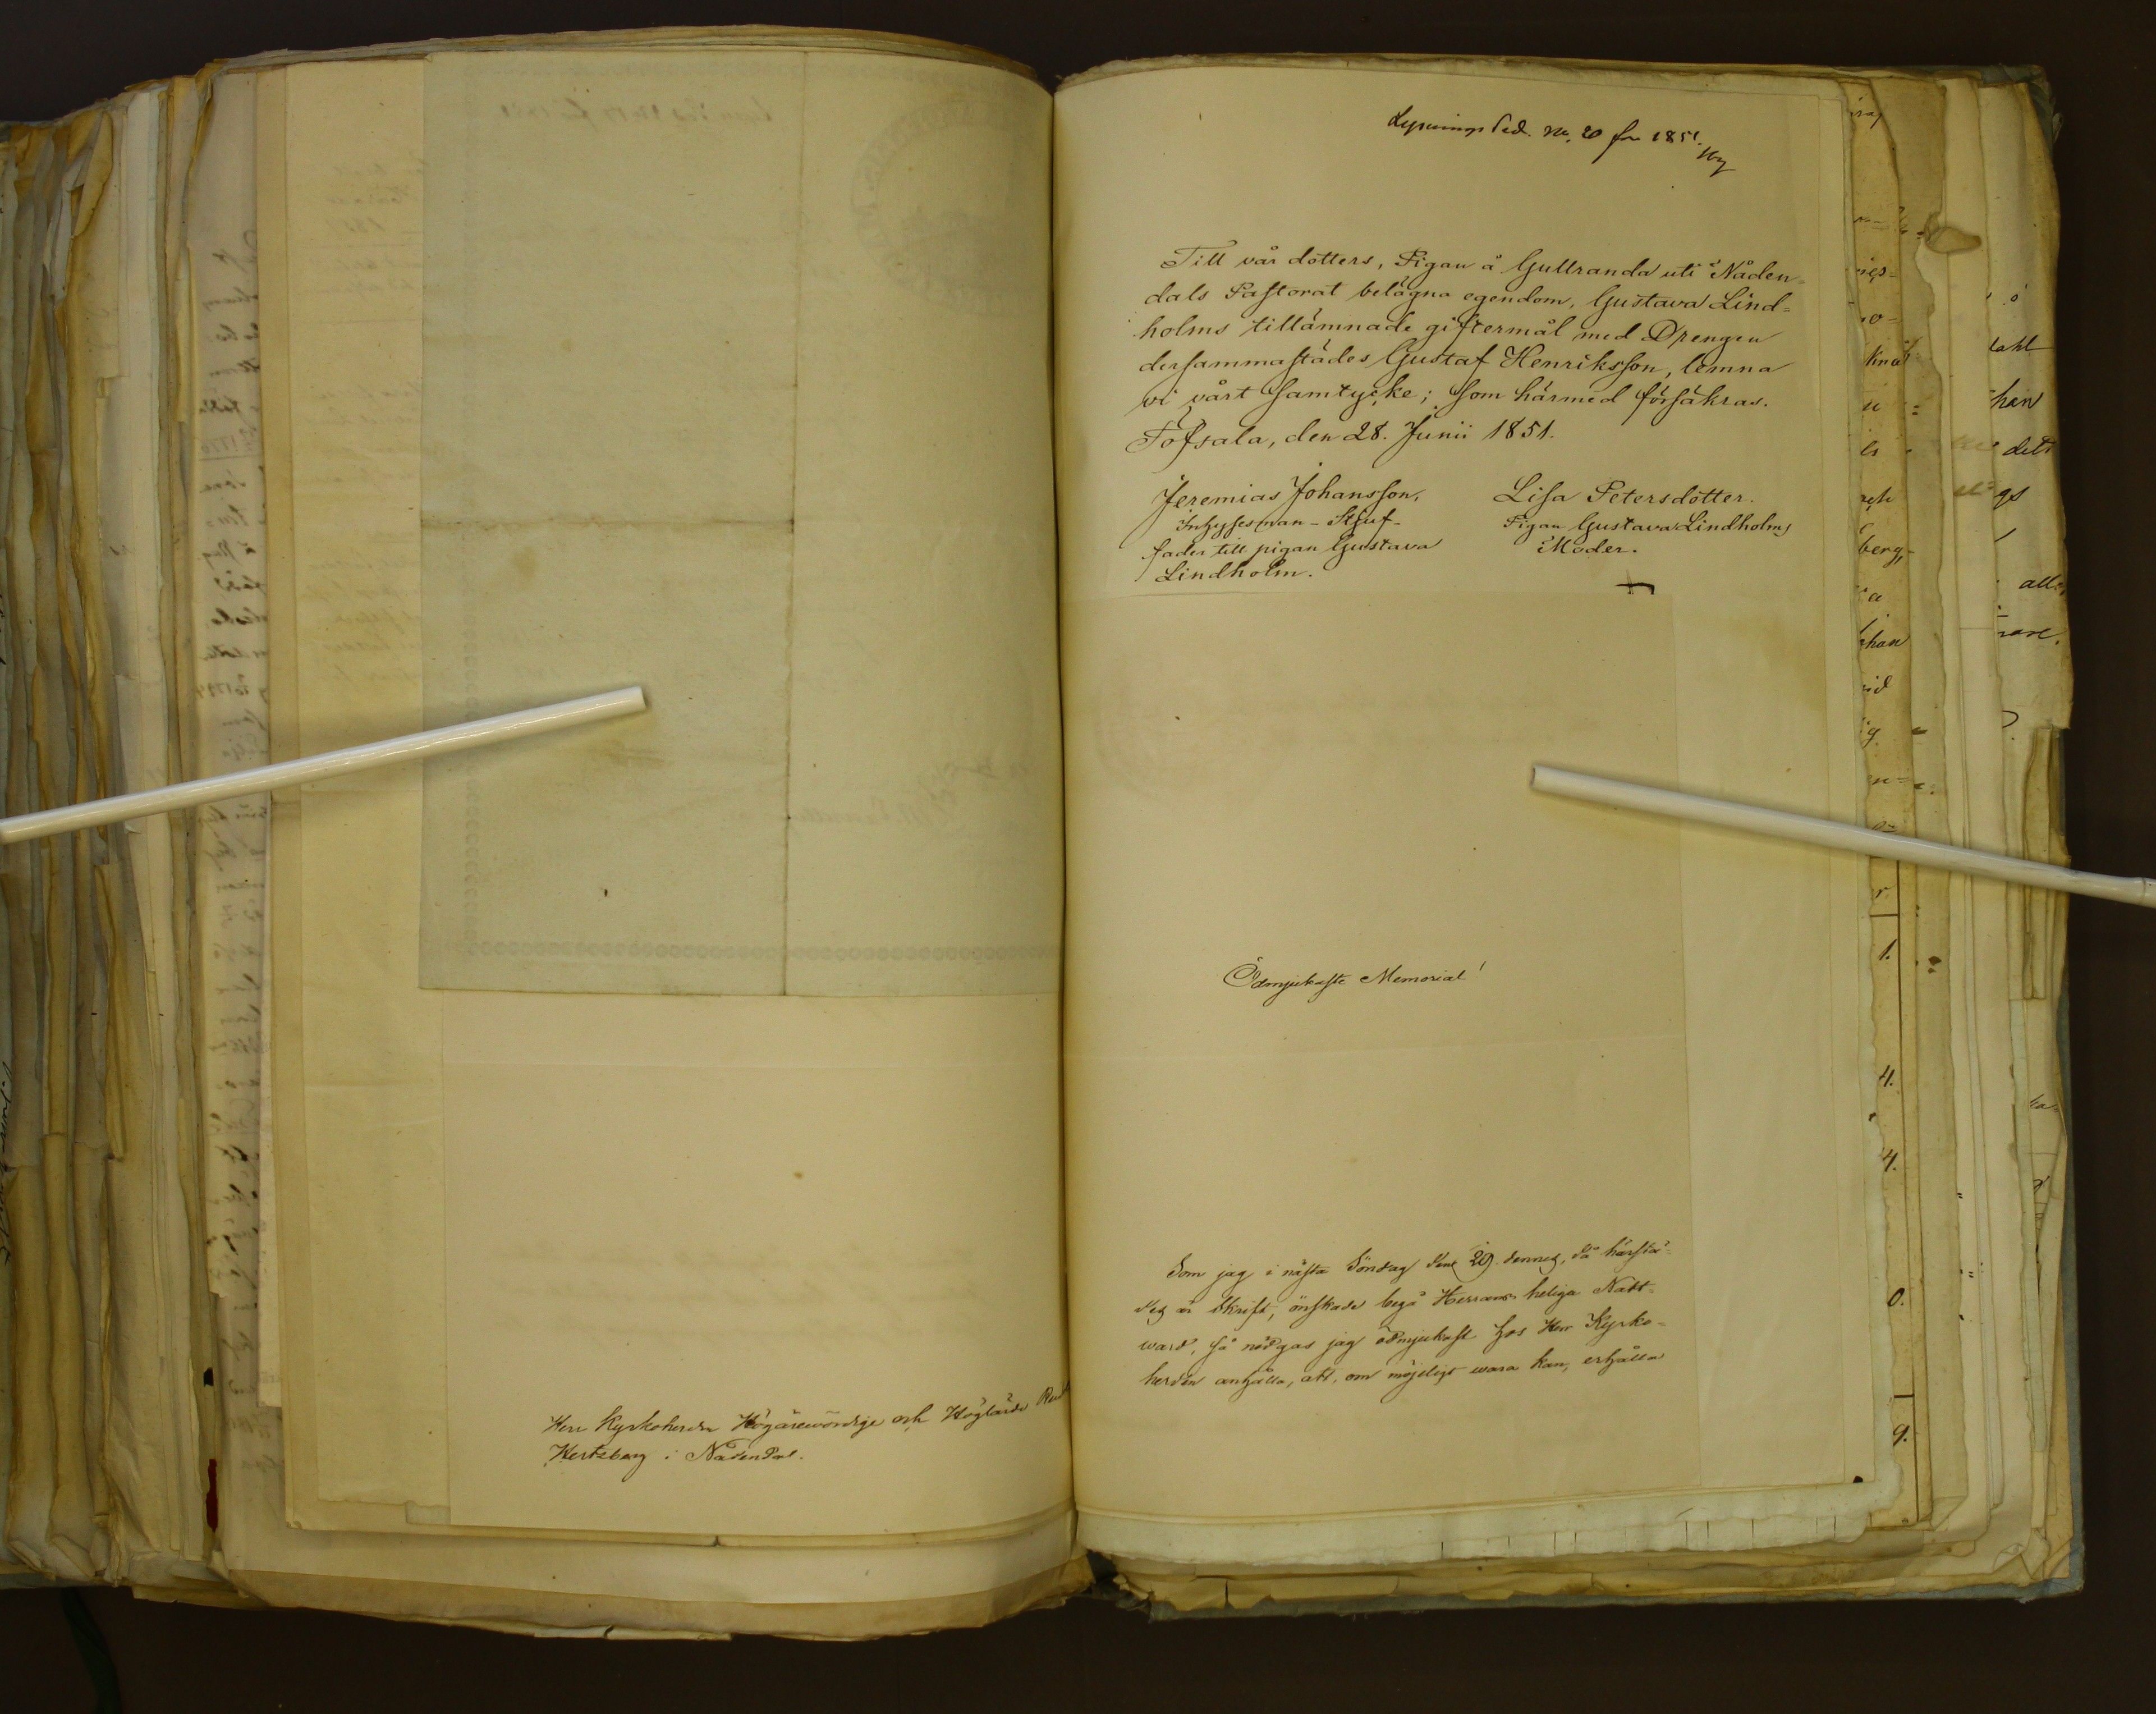 Herr Kyrkoherden Högärewördige och Höglärde
Hertzberg i Nådendal.
Lysnings Sed. No. 20 för 1851.
Till vår dotters, Pigan å Gullranda uti Nåden-
dals Pastorat belägna egendom, Gustava Lind=
holms tillämnade giftermål med Drengen
dersammastädes Gustaf Henriksson, lemna
vi vårt samtycke; som härmed försäkras.
Töfsala, den 28. Junii 1851.
Jeremias Johansson,
Inhysesman - Stjuf-
fader till pigan Gustava
Lindholm.
Lisa Petersdotter.
Pigan Gustava Lindholms
Moder.
Ödmjukaste Memorial!
Som jag i nästa Söndag den 29 dennes, då härstä=
des är Skrift, önskade begå Herrans heliga Natt=
ward, så nödgas jag ödmjukast hos Herr Kyrko=
herden anhålla, att, om möjeligt wara kan, erhålla